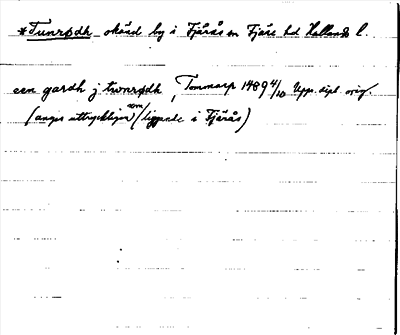 *Tunrødh okänd by i Fjärås sn Fjäre hd Hallands l.
een gardh j twnrødh, Tommarp 1489 4/10 Upps. dipl. orig.
(anges uttryckligen som liggande i Fjärås)